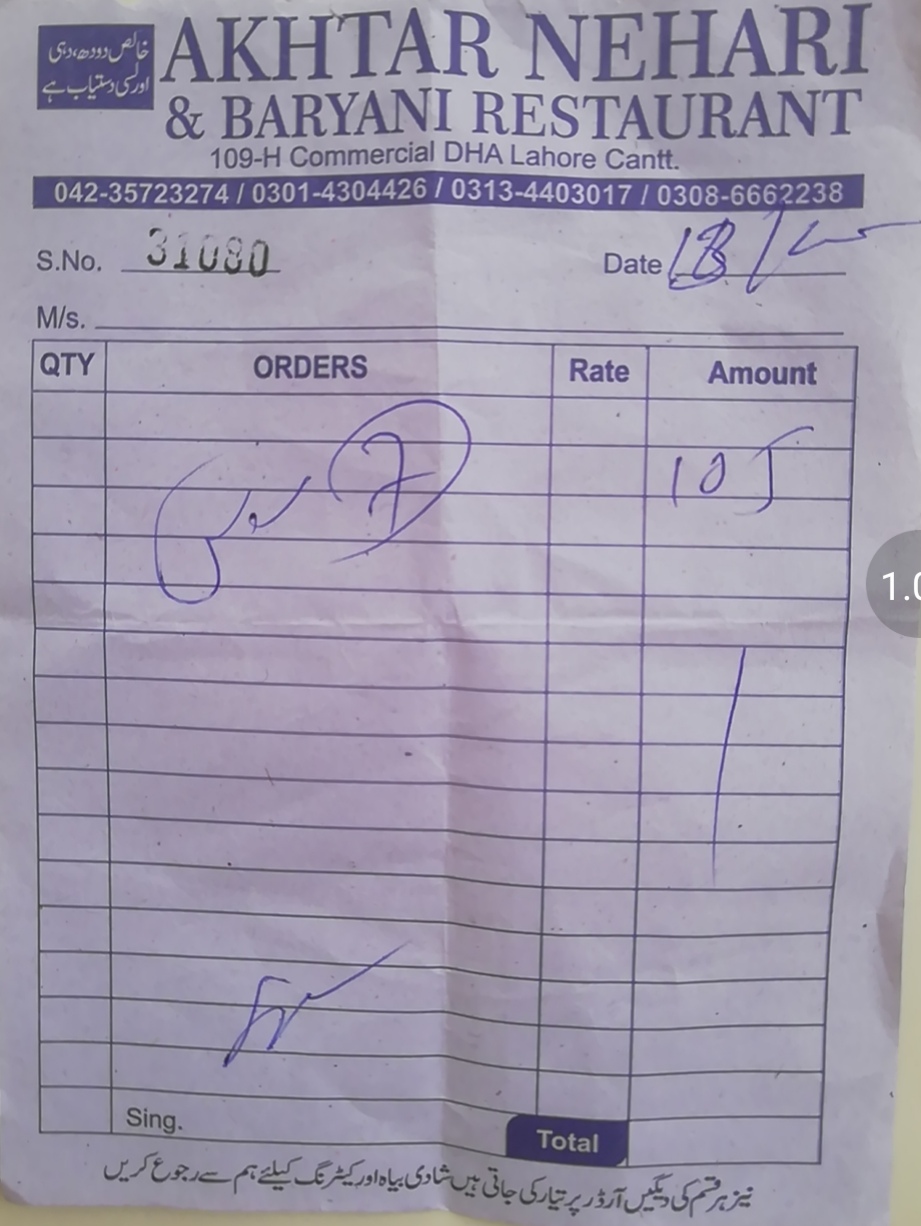 خالص دودھ، دہی
اور لسی دستیاب ہے
AKHTAR NEHARI
& BARYANI RESTAURANT
109-H Commercial DHA Lahore Cantt.
042-35723274 / 0301-4304426 / 0313-4403017 / 0308-6662238
S.No. 31080 Date 18/
M/s.
QTY ORDERS Rate Amount
7 105
1.0
Sing.
Total
نیز ہر قسم کی دیگیں آرڈر پر تیار کی جاتی ہیں شادی بیاہ اور کیٹرنگ کیلئے ہم سے رجوع کریں